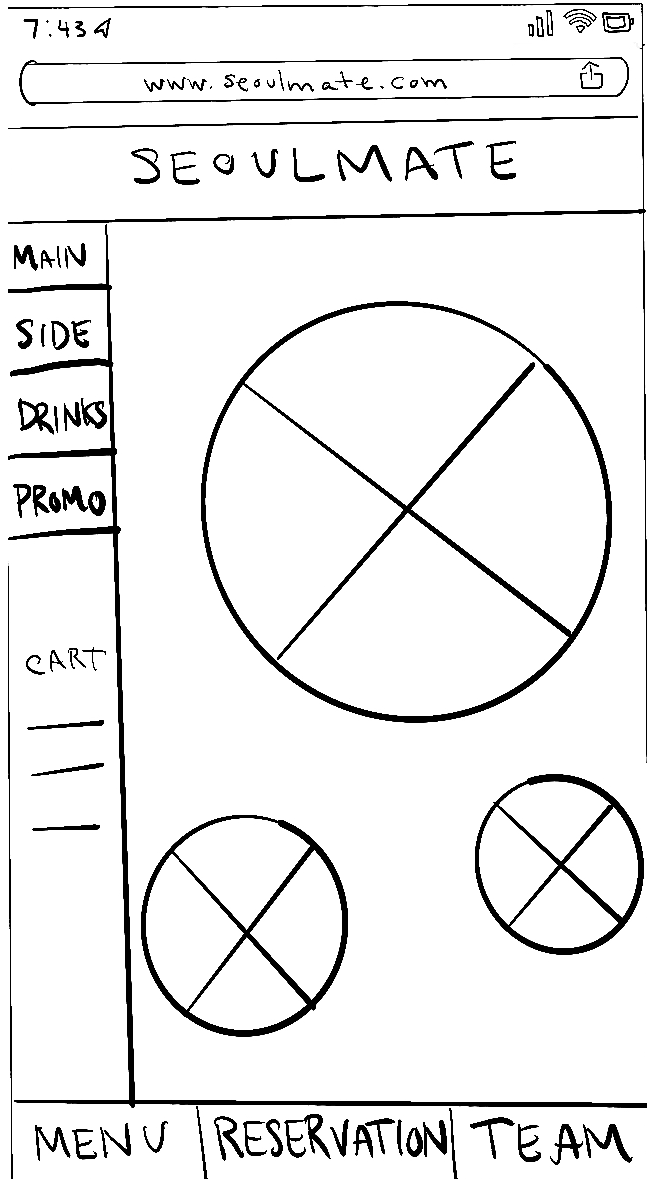 7:43
www.seoulmate.com
SEOULMATE
MAIN
SIDE
DRINKS
PROMO
CART
MENU
RESERVATION
TEAM